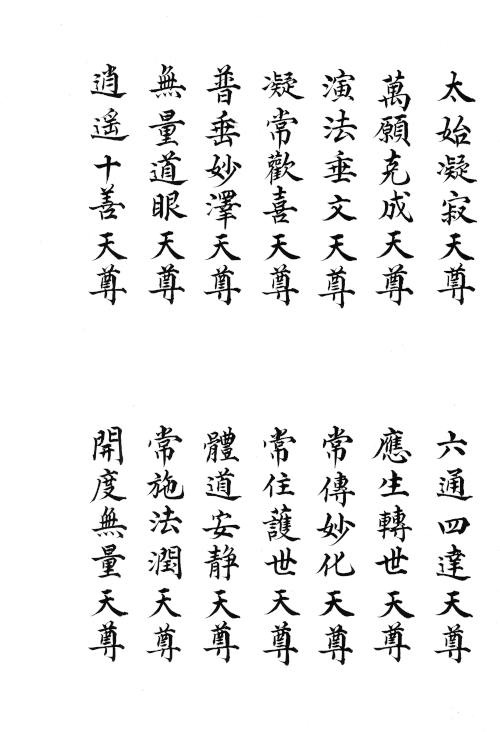 太始凝寂天尊
六通四達天尊
萬願克成天尊
應生轉世天尊
演法垂文天尊
常傳妙化天尊
凝常歡喜天尊
常住護世天尊
普垂妙澤天尊
體道安静天尊
無量道眼天尊
常施法潤天尊
逍遙十善天尊
開度無量天尊